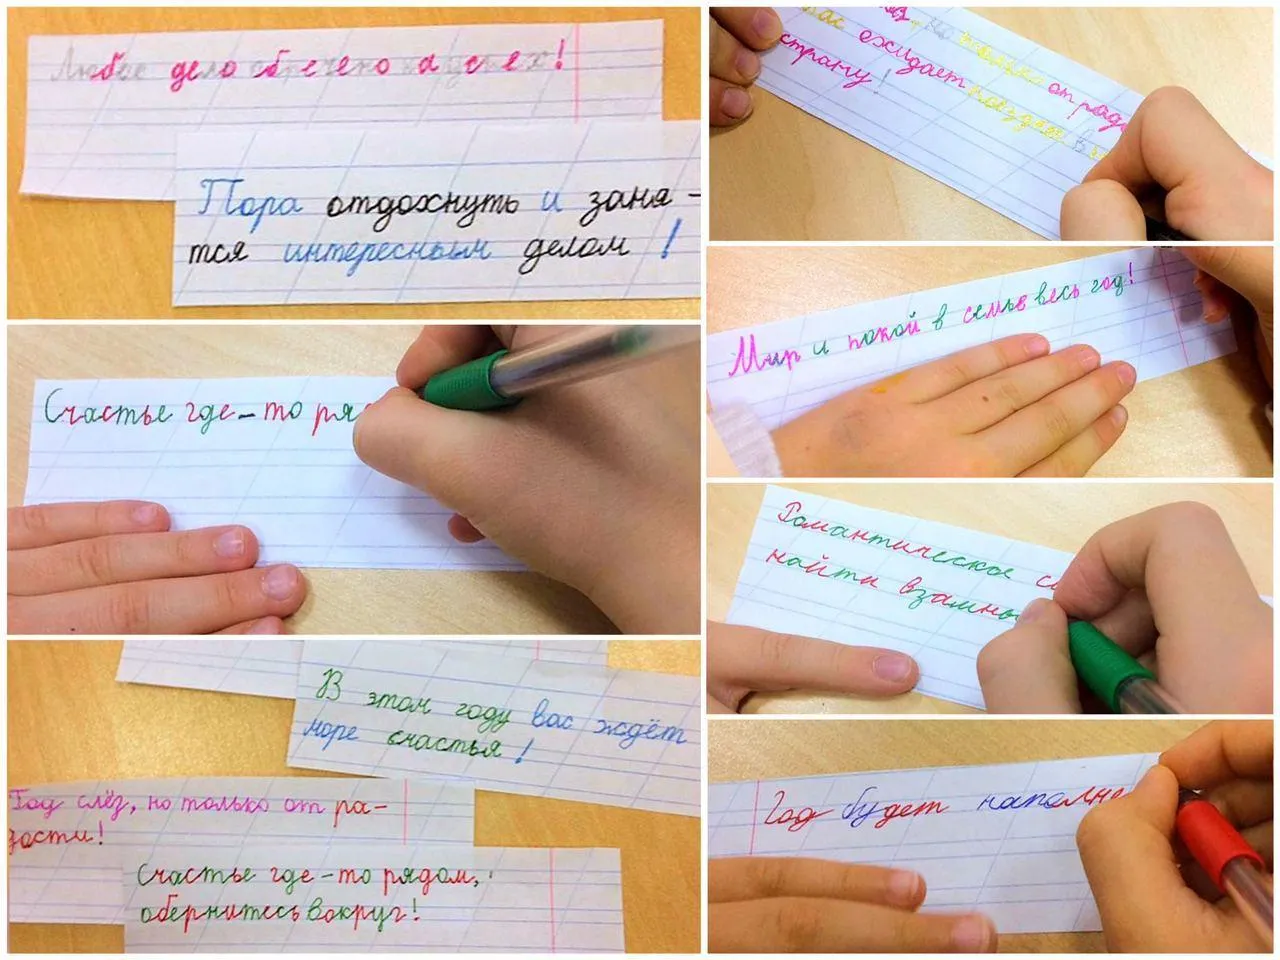 Любое дело обречено на успех!
Пора отдохнуть и заня-
тся интересным делом!
Счастье где-то ря
В этом году вас ждёт
море счастья!
Год слёз, но только от ра-
дости!
Счастье где-то рядом,
обернитесь вокруг!
но только от радо
вас ожидает поездка в
страну!
Мир и покой в семье весь год!
Романтическое
найти взаимны
Год будет наполне